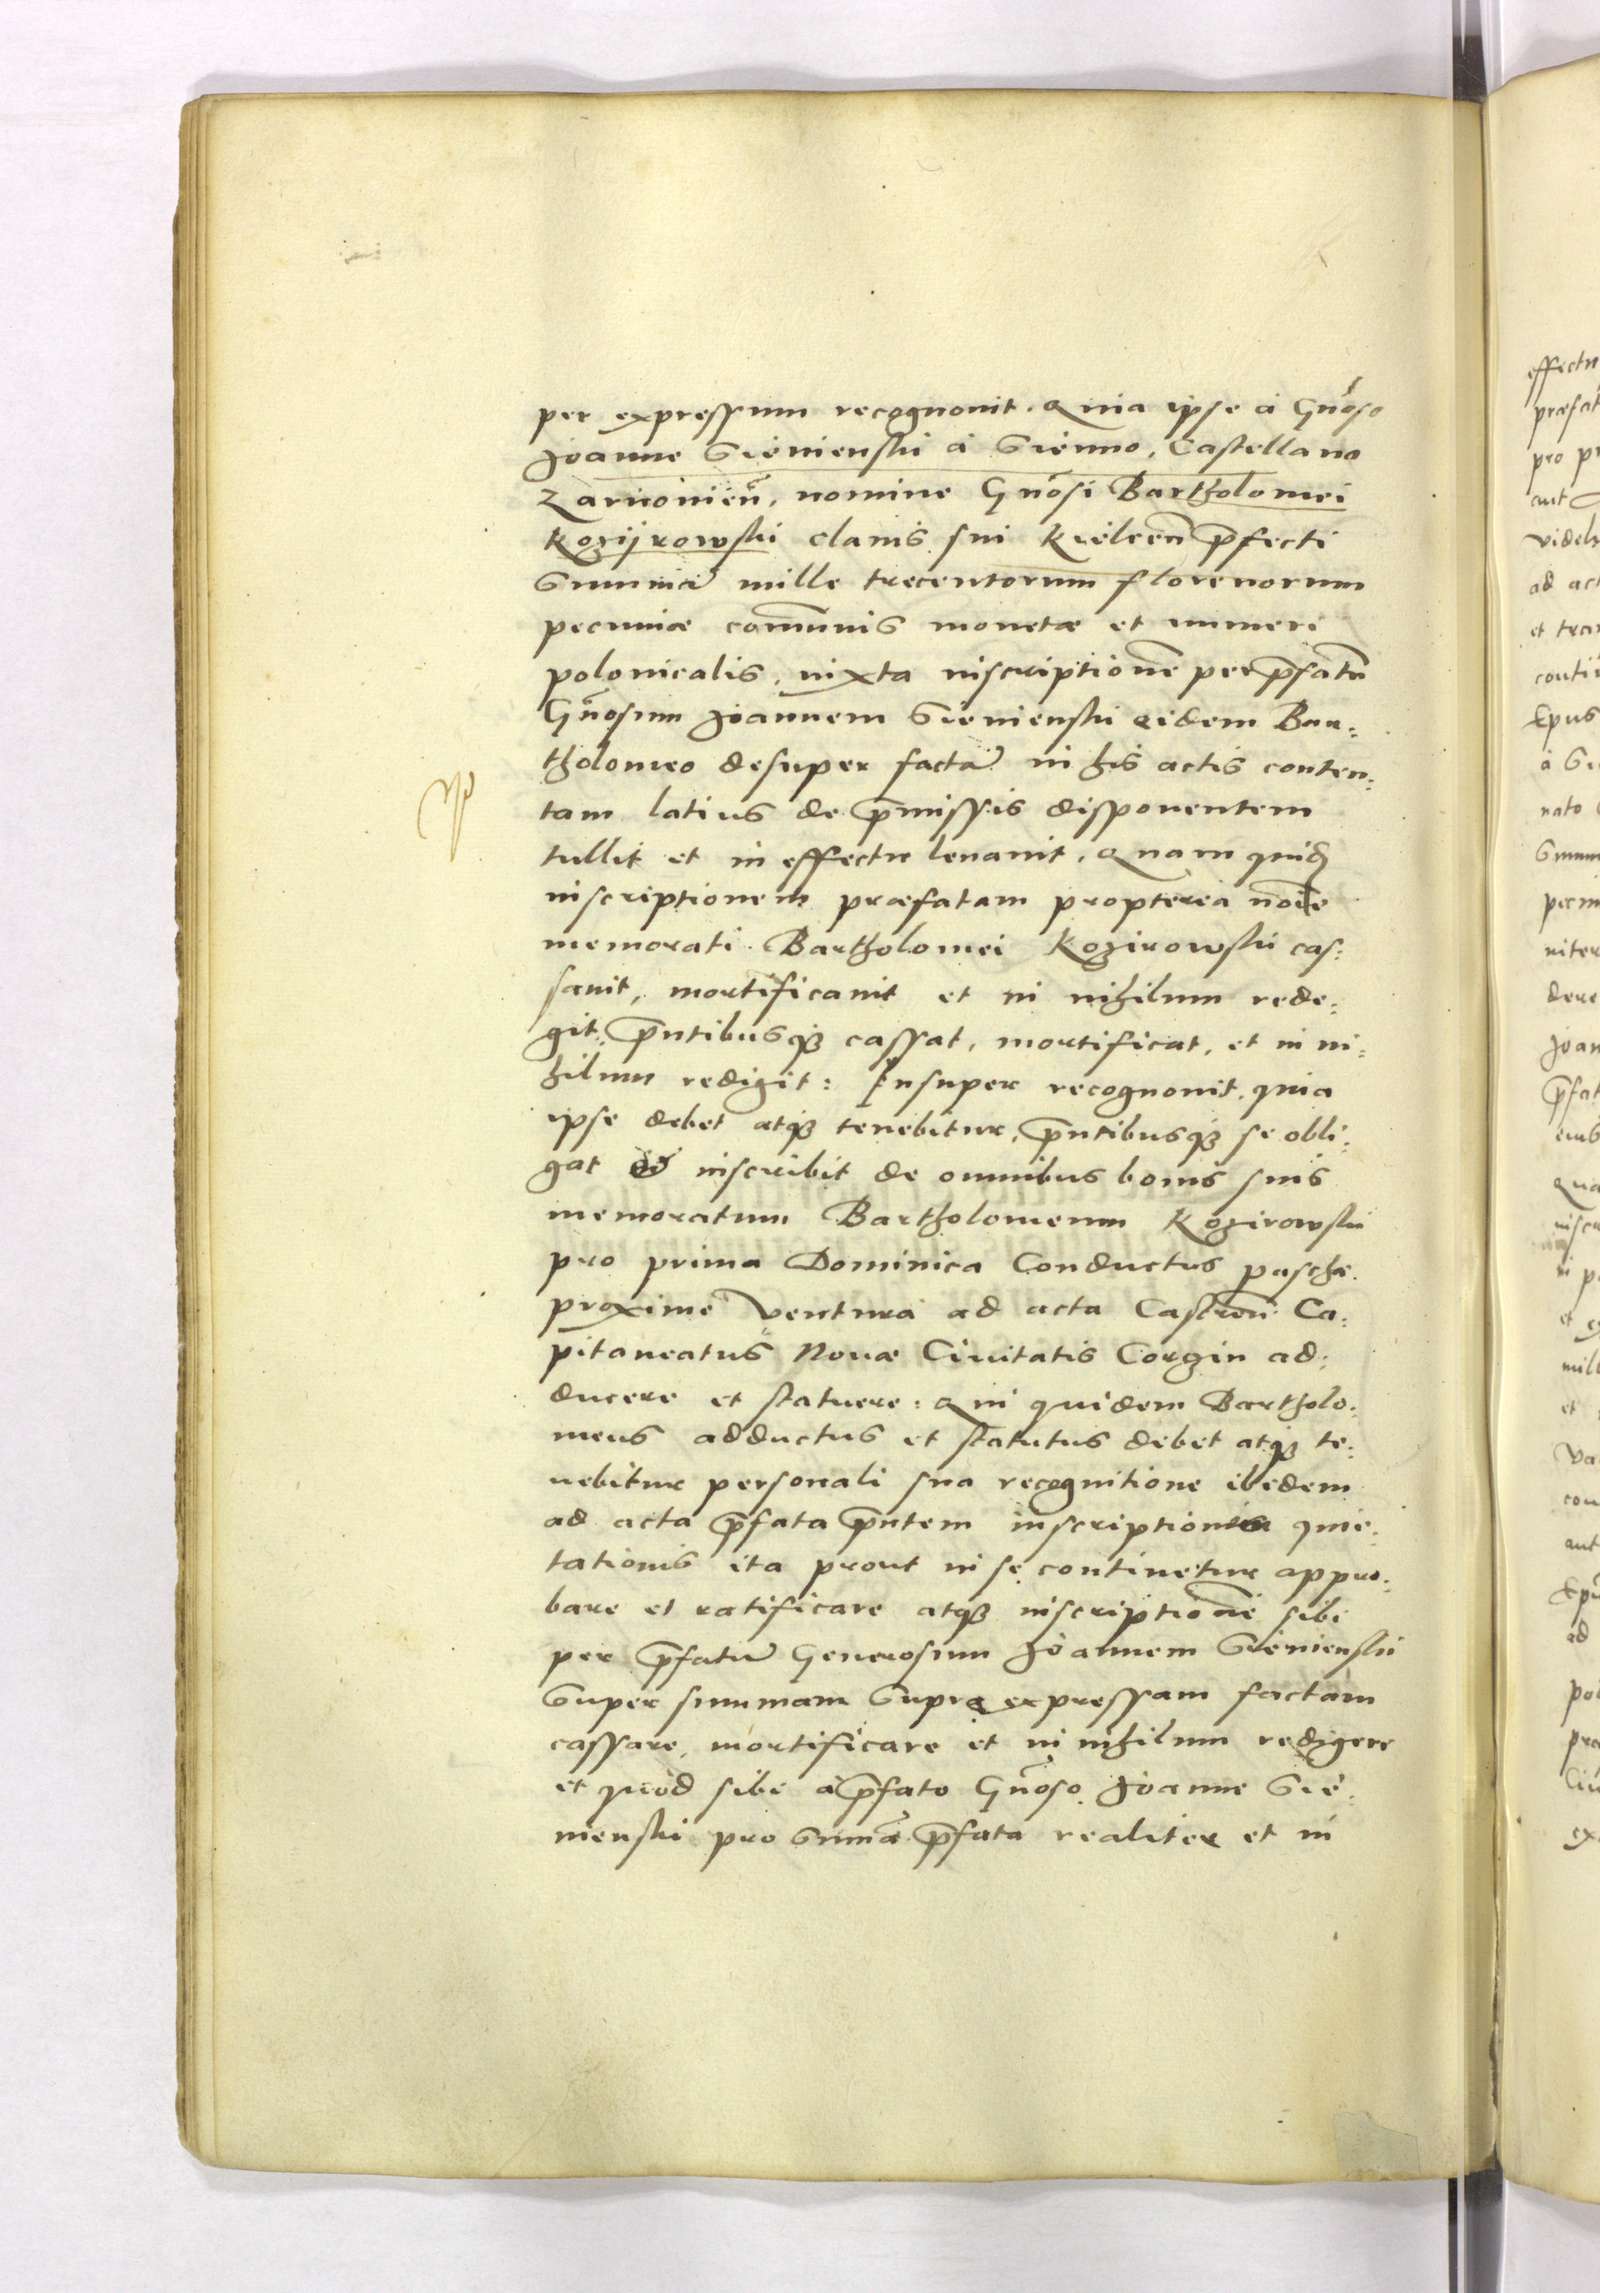 per expressum recognouit. Quia ipse à Gnoso
Joanne Sienienski à Sienno, Castellano
Zarnouien, nomine Gnosi Bartholomei
Kozijrowski clauis sui Kielcen pfecti
Summa mille trecentorum florenorum
pecuniæ comunis monetæ et numeri
polonicalis, iuxta inscriptione per pfatu
Gnosum Joannem Sienienski eidem Bar:
tholomeo desuper facta in his actis conten:
tam latius de pmissis disponentem
tullit et in effectu leuauit. Quam quid
inscriptionem præfatam propterea noie
memorati Bartholomei Kozirowski cas:
sauit, mortificauit et in nihilum rede:
git, pntibusq cassat, mortificat, et in ni:
hilum redigit: Insuper recognouit, quia
ipse debet atq tenebitur, pntibusq se obli:
gat et inscribit de omnibus bonis suis
memoratum Bartholomeum Kozirowski
pro prima Dominica Conductus paschæ
proxime ventura ad acta Castren Ca:
pitaneatus Nouæ Ciuitatis Corzin ad:
ducere et statuere: Qui quidem Bartholo:
meus adductus et statutus debet atq te:
nebitur personali sua recognitione ibidem
ad acta pfata pntem inscriptionem quie:
tationis ita prout in se continetur appro:
bare et ratificare atq inscriptione sibi
per pfatu Generosum Joannem Sienienski
Super summam Supra expressam factam
cassare, mortificare et in nihilum redigere
et quod sibi à pfato Gnoso Joanne Sie:
nienski pro Suma pfata realiter et in
effectu
pro
Epus
nato